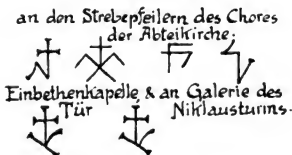 an den Strebepfeilern des Chores
der Abteikirche;
Einbethenkapelle, & an Galerie des
Tür Niklausturms.